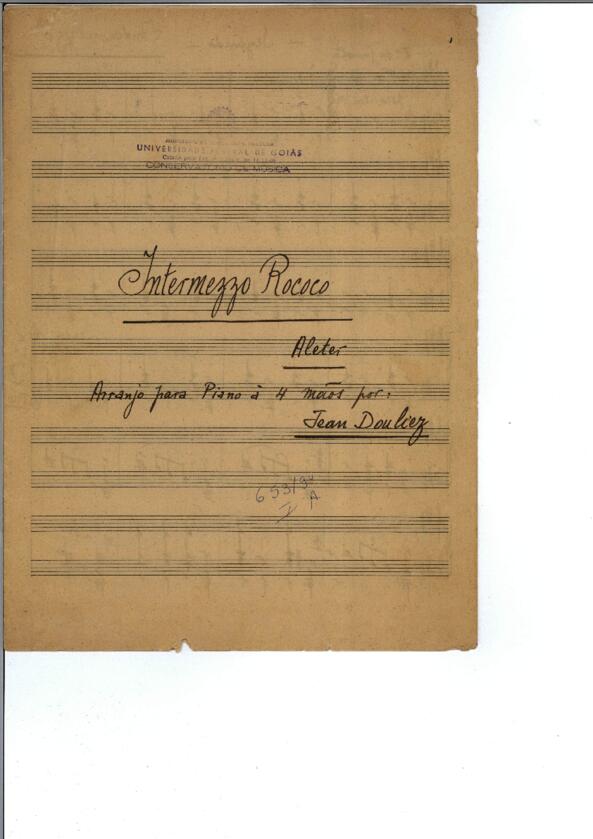 UNIVERSIDADE FEDERAL DE GOIÁS
CONSERVATÓRIO DE MÚSICA
Intermezzo Rococo
Aleter
Arranjo para Piano à 4 mãos por:
Jean Douliez